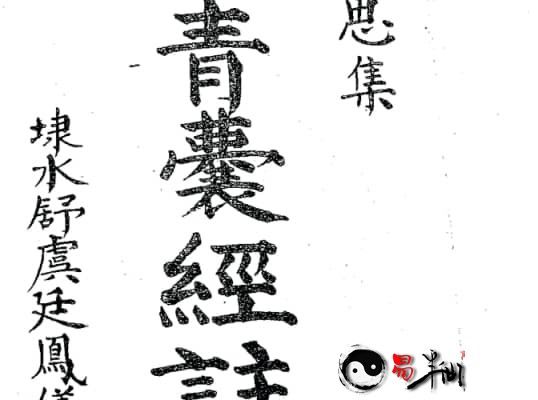 思集
青囊經註
埭水舒虞廷鳳儀
易